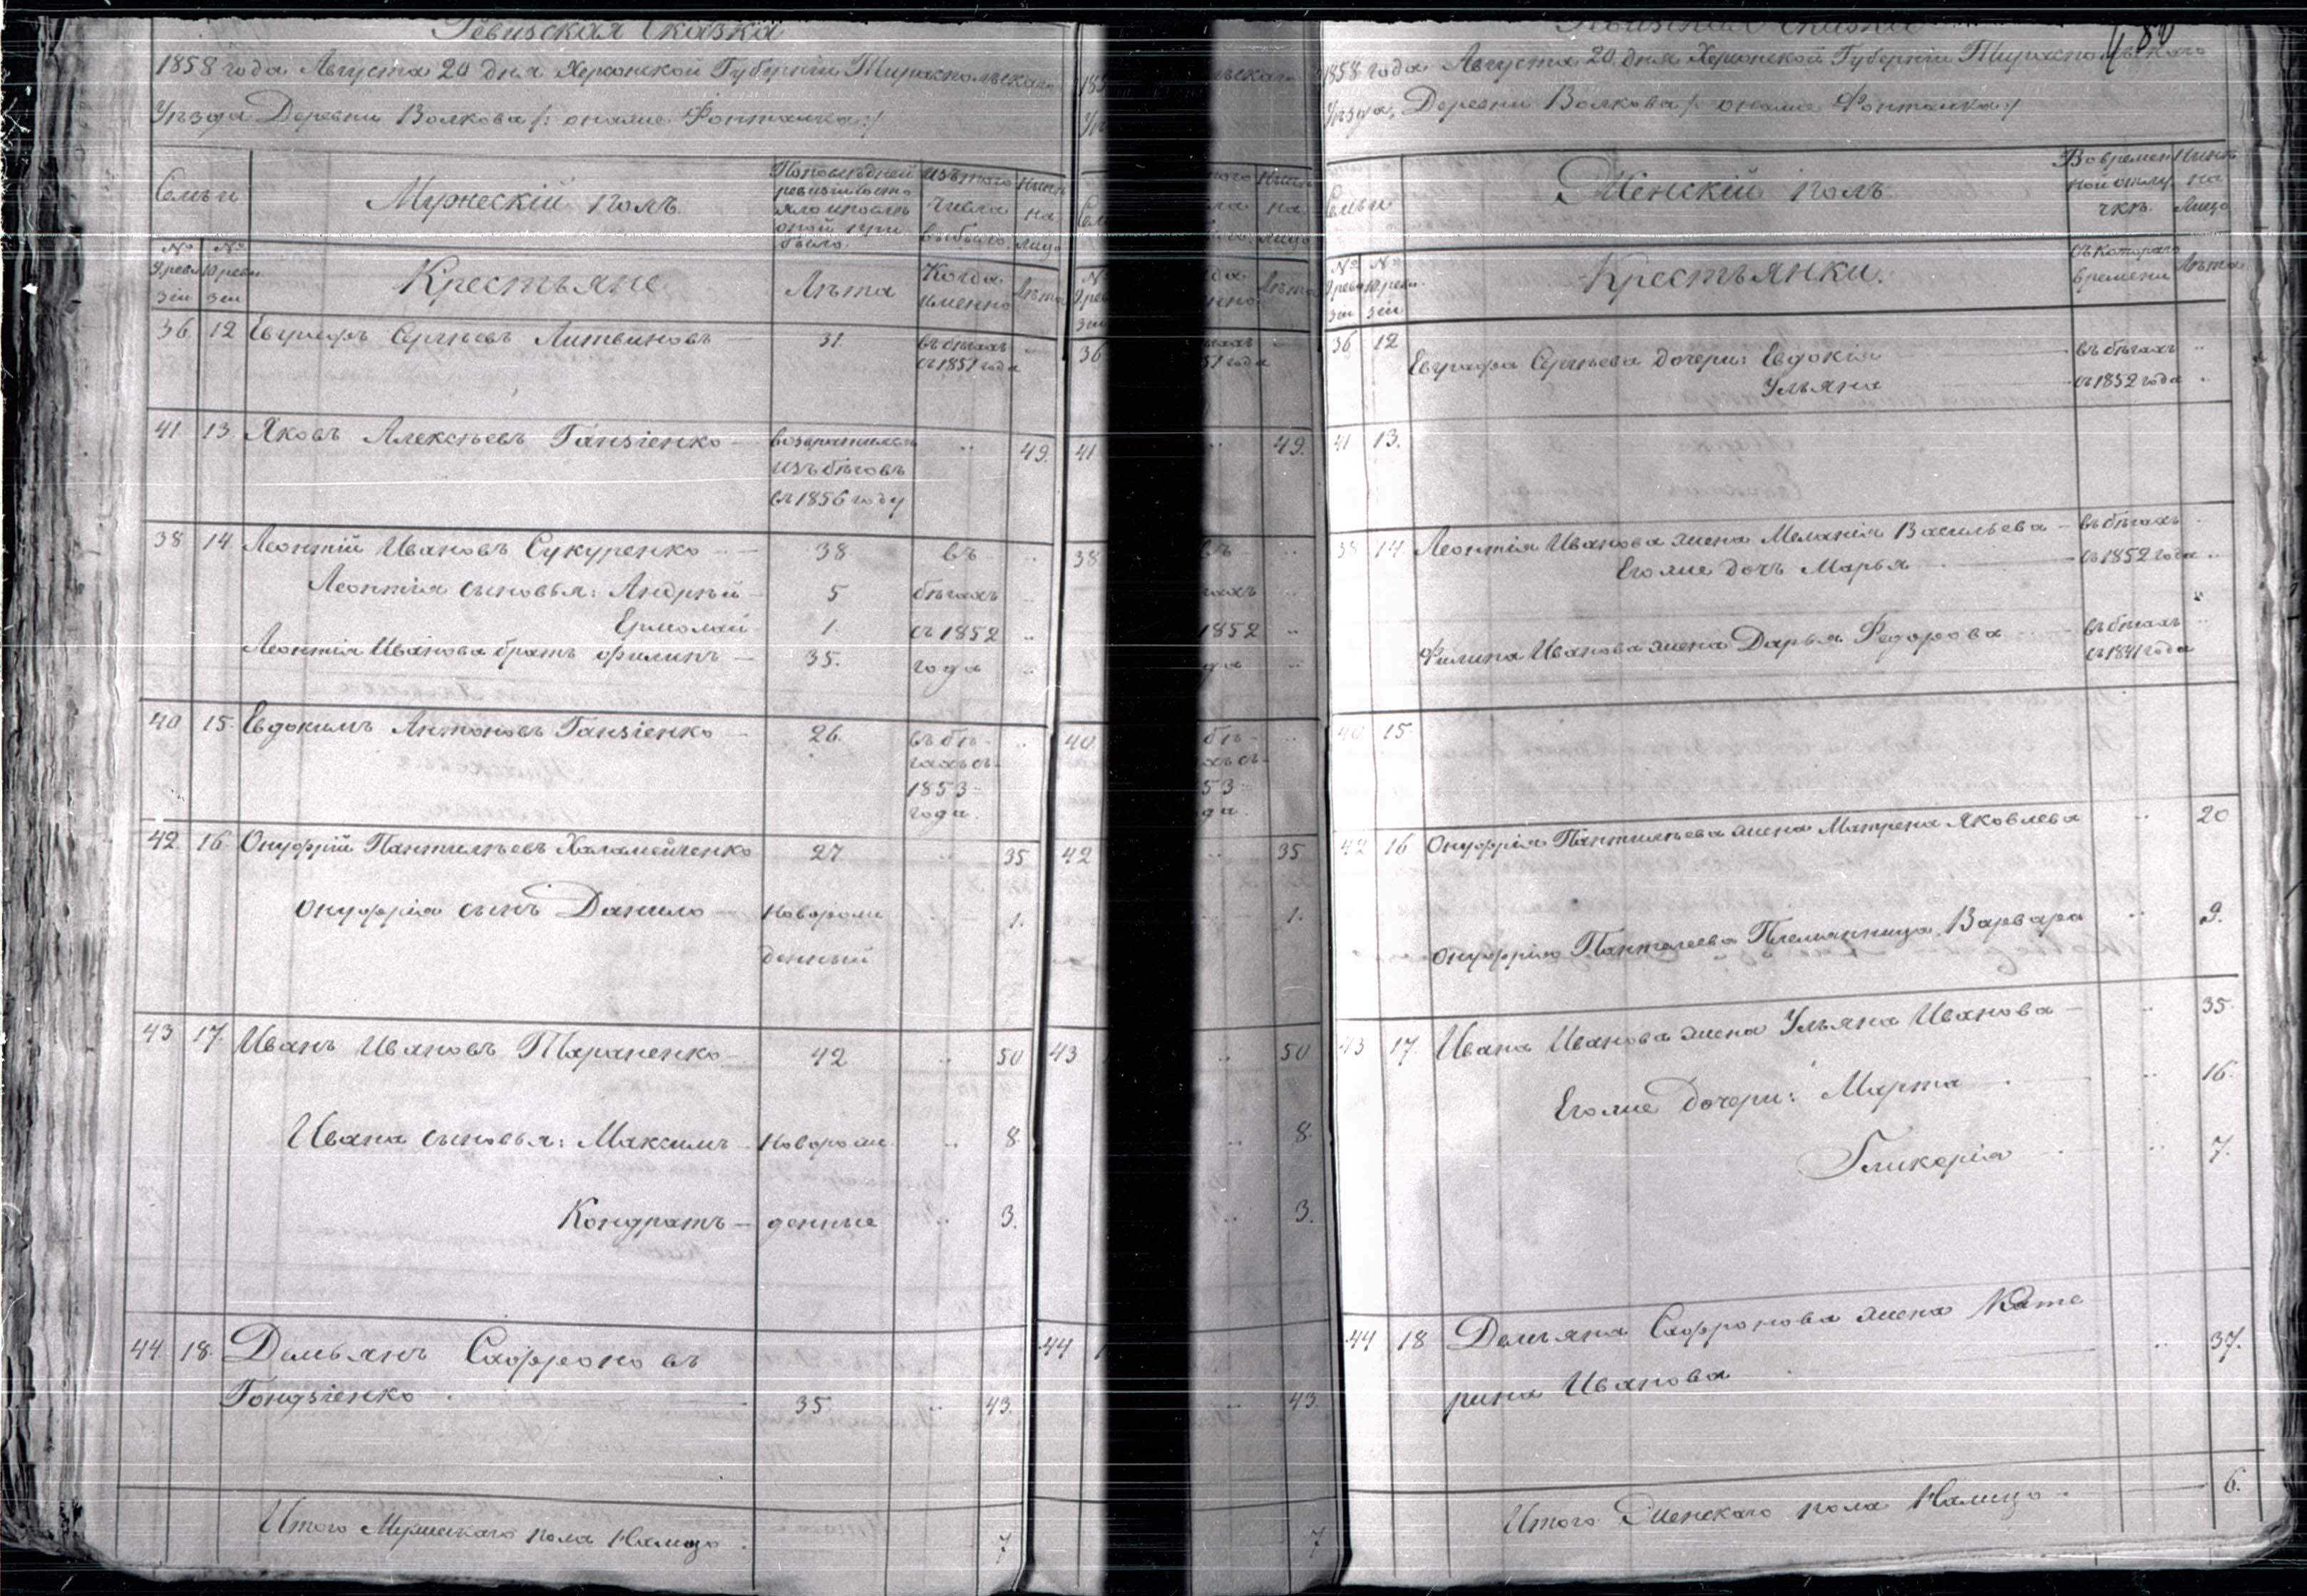 Ревизская Сказка
1858 года Августа 20 дня Херсонской Губернiи Тираспольскаго
Уѣзда Деревни Волкова /: онаже Фонтанка :/
Семьи
Мужескiй полъ
По последней ревизiи состояло и после оной прибыло
Изъ того числа выбыло
Нынѣ на лицо
№ 9 ревизiи
№ 10 ревизiи
Крестьяне
Лѣта
Когда именно
Лѣта
36 12 Евграфъ Сергѣевъ Литвиновъ 31. въ бѣгахъ ..
съ 1851 года
41 13 Яковъ Алексѣевъ Ганзiенко возвратился .. 49.
изъ бѣговъ
въ 1856 году
38 14 Леонтiй Ивановъ Сукуренко 38 въ ..
Леонтiя сыновья: Андрѣй 5 бѣгахъ ..
Ермолай 1. съ 1852 ..
Леонтiя Иванова братъ Филипъ 35. года ..
40 15 Евдокимъ Антоновъ Ганзiенко 26. въ бѣ- ..
гахъ съ
1853
года.
42 16 Онуфрiй Пантилѣевъ Халамейченко 27 .. 35
Онуфрiя сынъ Данило Новорож .. 1.
денный
43 17. Иванъ Ивановъ Тараненко 42 .. 50
Ивана сыновья: Максимъ Новорож .. 8.
Кондратъ денные .. 3.
44. 18. Демьянъ Сафроновъ
Гондзiенко 35. .. 43.
Итого Мужескаго пола Налицо 7
41 .. 49.
38 1852
40.
42 .. 35
1.
43 .. 50
8.
3.
44 .. 43.
7
480
1858 года Августа 20 дня Херсонской Губернiи Тираспольскаго
Уѣзда, Деревни Волкова /: онаже Фонтанка :/
Семьи
Женскiй полъ
Во временной отлучкѣ.
Нынѣ на Лицо
№ 9 ревизiи
№ 10 ревизiи
Крестьянки.
Съ котораго времени
Лѣта
36 12 Евграфа Сергѣева дочери: Евдокiя въ бѣгахъ ..
Ульяна съ 1852 года ..
41 13.
38 14 Леонтiя Иванова жена Меланiя Васильева въ бѣгахъ ..
Егоже дочь Марья съ 1852 года ..
Филипа Иванова жена Дарья Федорова въ бѣгахъ ..
съ 1841 года
40 15
42 16 Онуфрiя Пантилѣева жена Матрена Яковлева .. 20
Онуфрiя Пантелеева Племянница Варвара .. 9.
43 17. Ивана Иванова жена Ульяна Иванова .. 35.
Егоже дочери: Марта .. 16.
Гликерiя .. 7.
44 18 Демьяна Сафронова жена Кате
рина Иванова .. 37.
Итого Женскаго пола Налицо 6.